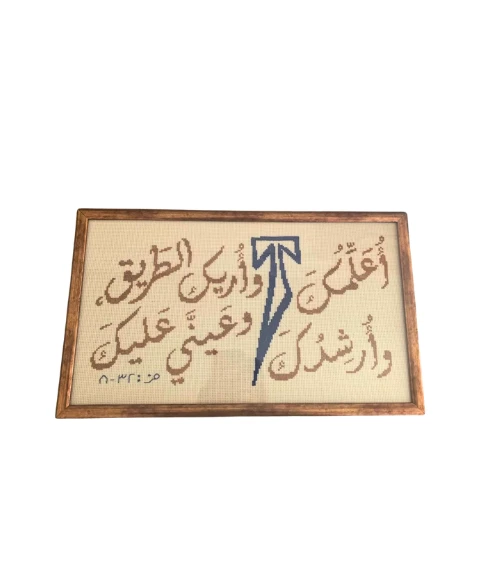 أُعَلِّمُكَ وأُريكَ الطَريق،
وأُرشِدُكَ وعَينيَّ عَليكَ
مز : ٣٢-٨